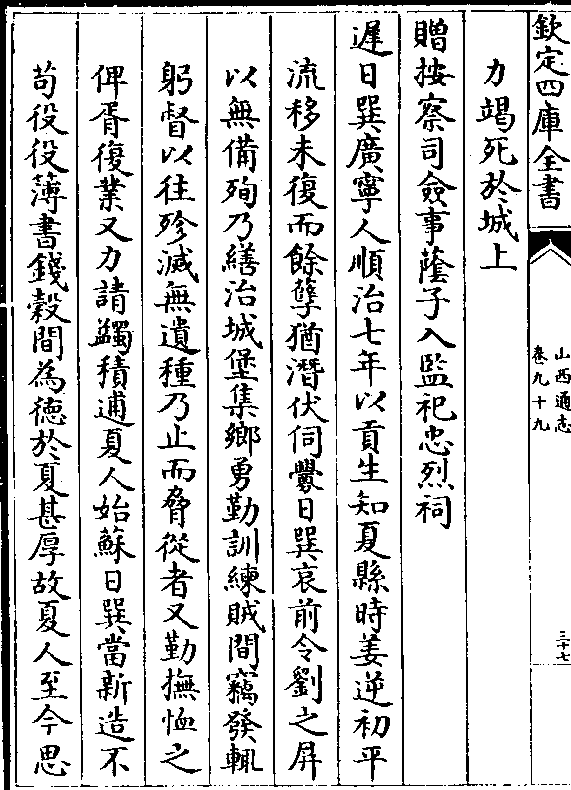 欽定四庫全書
山西通志
卷九十九
三十七
力竭死於城上
贈按察司僉事蔭子入監祀忠烈祠
遲日巽廣寧人順治七年以貢生知夏縣時姜逆初平
流移未復而餘孽猶潛伏伺釁日巽哀前令劉之屏
以無備殉乃繕治城堡集鄉勇勤訓練賊間竊發輒
躬督以往殄滅無遺種乃止而脅從者又勤撫恤之
俾胥復業又力請蠲積逋夏人始蘇日巽當新造不
苟役役薄書錢穀間為德於夏甚厚故夏人至今思